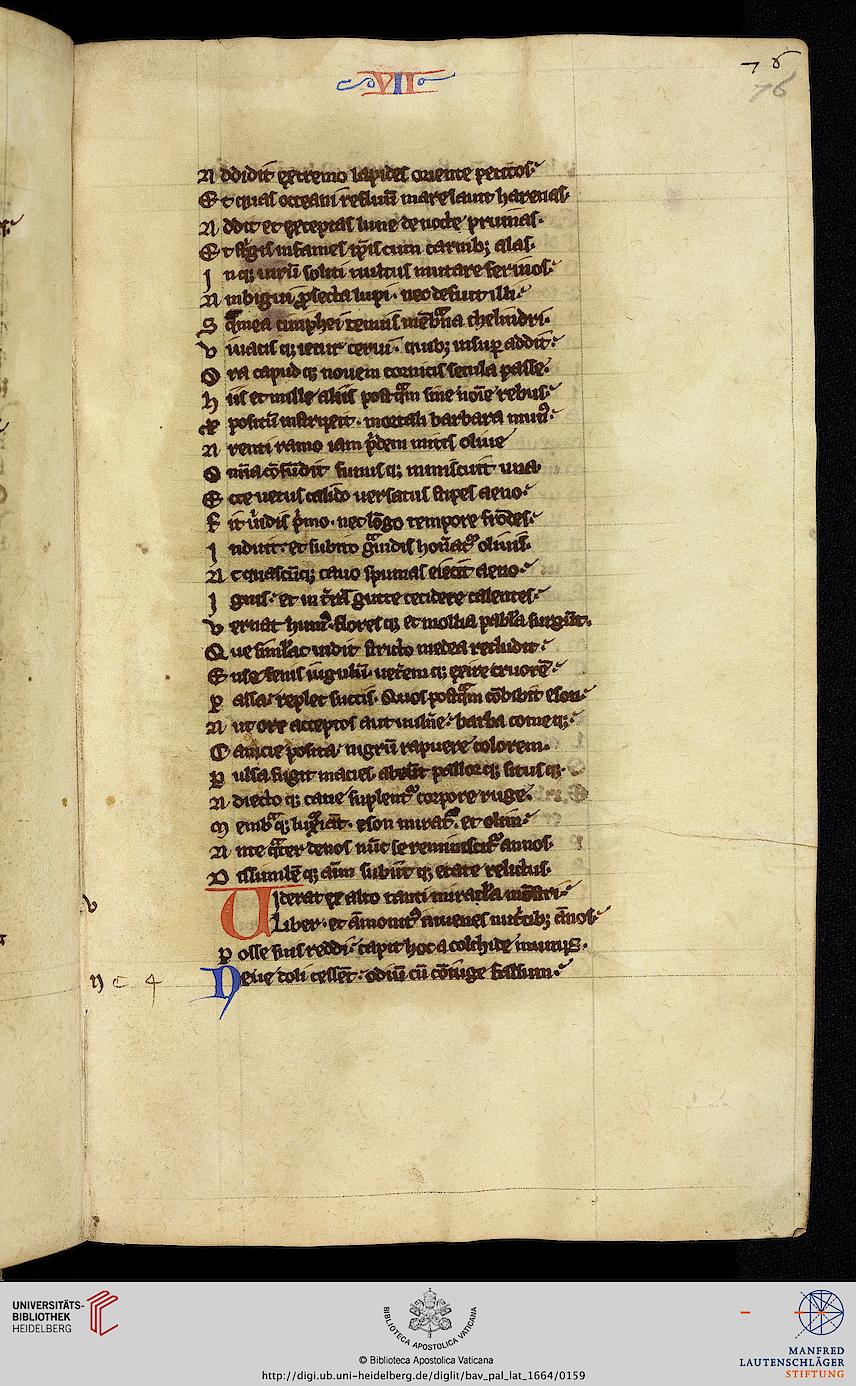 VII
76
76
A ddidit extremo lapides oriente petitos
E t quas occeani refluū mare lauit harenas.
A ddit et exceptas lune de nocte pruinas.
E t st͛gis infames ip̄is cum carnib; alas.
I n q; uirū soliti uultus mutare ferinos
A mbigui ꝓsecta lupi. nec defuit illi
S q̄mea ciniphei tenuis mēb͛na chelindri.
V iuacis q; iecur cerui. quib; insuꝑ addit
O ra capud q; nouem cornicis secula passe.
h iis et mille aliis postq̄m sine noīe rebus
 positū instruxit. mortali barbara mun᷒
A renti ramo iam p͛dem mitis oliue
O mīa cōfūdit sumis q; inmiscuit una
E cce uetus calido uersatus stipes aeno
F it ui͛dis p͛mo. nec lōgo tempore frōdes
I nduit. et subito g͛uidis hon͛at᷒ oliuis.
A t quascūq; cauo spumas eiecit aeno
I gnis. et in t͛rā gutte cecidere calentes
V ernat hum᷒. flores q; et mollia pab͛la surgūt.
Q ue simlac uidit stricto medea recludit
E nse senis iugulū. uet͛em q; exire cruorē
P assa. replet succis. Quos postq̄m cōbibit eson
A ut ore acceptos aut uuln͛e. barba come q;
C anicie posita. nigrū rapuere colorem.
P ulsa fugit macies. abeūt pallor q; situs q;
A diecto q; caue suplent᷒ corpore ruge.
M emb͛q; luxiāt. eson mirat᷒. et olim
A nte q͛ter denos nūc se reminiscit᷒ annos.
D issimilē q; aīm subiit q; etate relictus.
V
Viderat ex alto tanti miracla mōstri
Liber. et āmonit᷒ iuuenes nut͛cib; ānos
P osse suis reddi. capit hoc a colchide munus.
n c 4
Neue doli cessēt. odiū cū cōiuge falsum
UNIVERSITÄTS-
BIBLIOTHEK
HEIDELBERG
BIBLIOTECA APOSTOLICA VATICANA
© Biblioteca Apostolica Vaticana
http://digi.ub.uni-heidelberg.de/diglit/bav_pal_lat_1664/0159
MANFRED
LAUTENSCHLÄGER
STIFTUNG